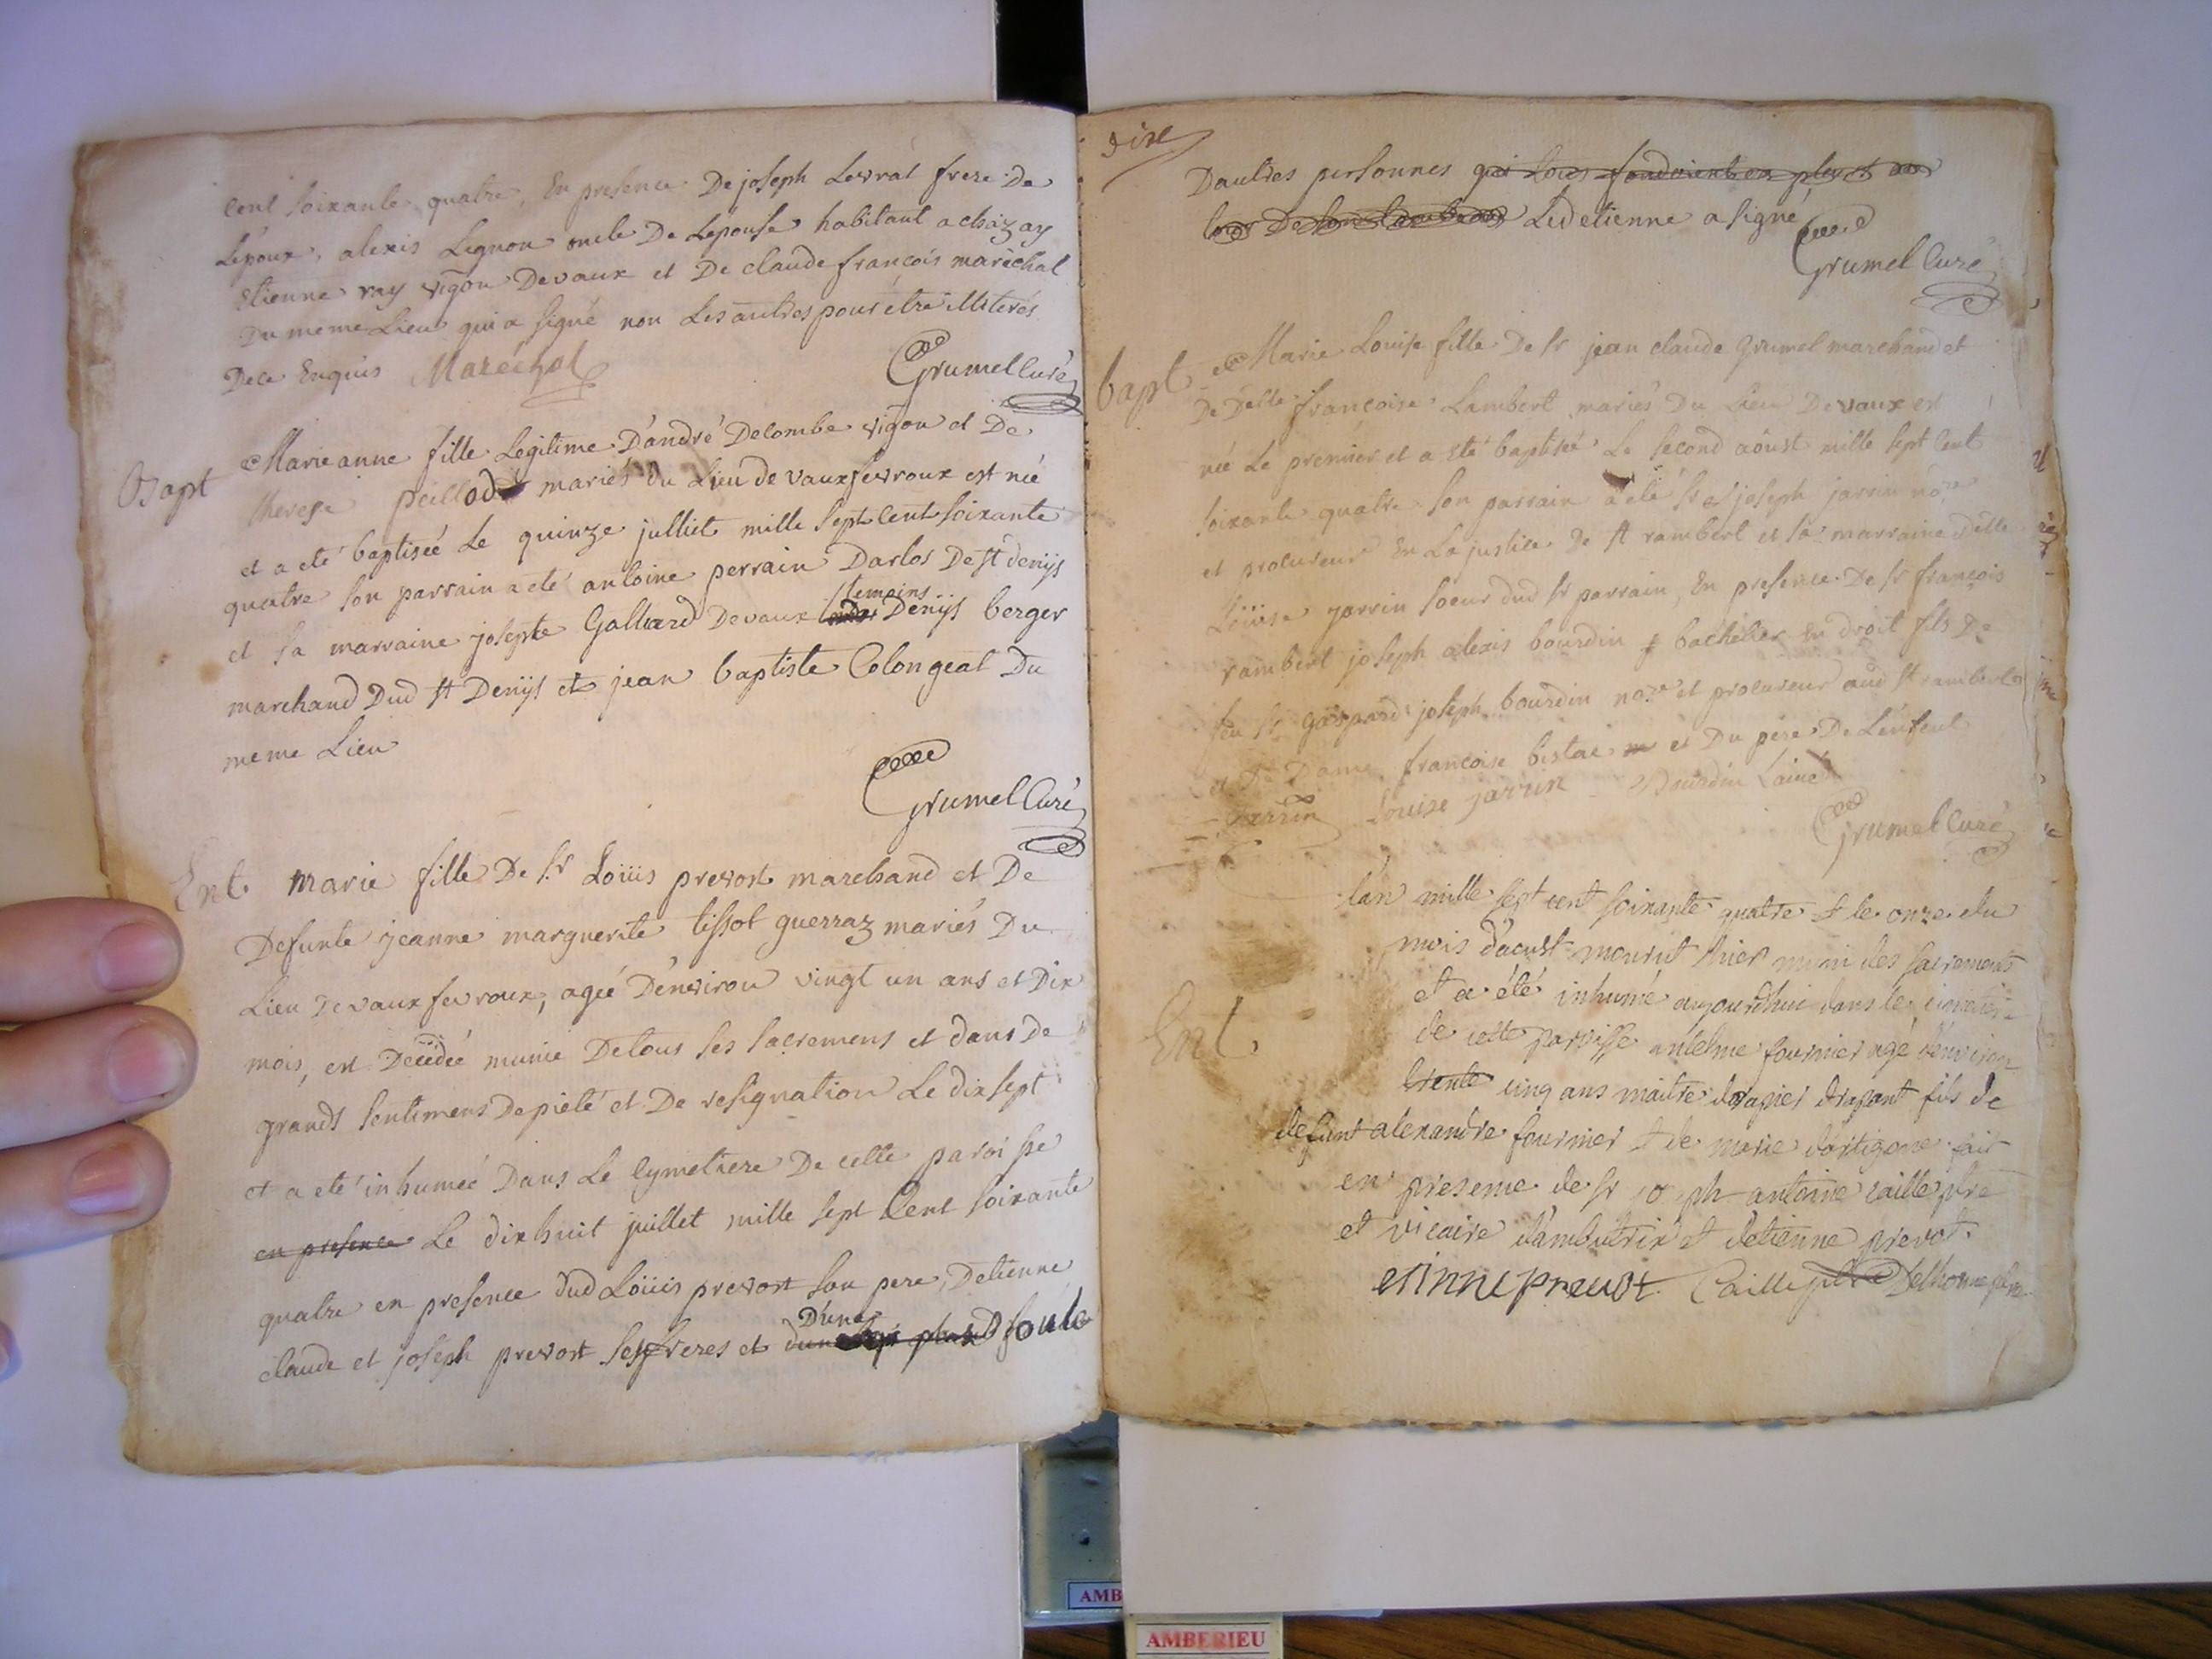 cent soixante quatre, En presence De joseph Levrat frere De
Lépoux, alexis Lignon oncle De Lepouse habitant a chazay
Etienne ray vigon Devaux et De claude francois maréchal
Du meme Lieu qui a signé non Les autres pour étre illiterés
De ce Enquis Maréchal
Grumel Curé
Bapt
Marie anne fille Legitime D'andré Delombe vigon et De
therese peillod mariés du Lieu de vauxfevroux est née
et a eté baptisée Le quinze julliet mille sept cent soixante
quatre son parrain a eté antoine perrain Darlos De st denijs
temoins
et sa marraine josephte Galliard Devaux Denijs berger
marchand Dud st Denijs et jean baptiste Colongeat Du
meme Lieu
Grumel Curé
Ent. marie fille De Sr Loüis prevost marchand et De
Defunte jeanne marguerite tissot guerraz mariés Du
Lieu De vaux fevroux, ageé D'environ vingt un ans et Dix
mois, est Decedeé munie De tous ses sacremens et dans De
grands sentimens De pieté et De resignation Le dix sept
et a eté inhumeé Dans Le Cymetiere De cette paroisse
en presence Le dix huit juillet mille sept Cent soixante
quatre en presence dud Loüis prevost son pere, Detienne
D'une
claude et joseph prevost ses freres et foule
Dautres personnes qui
Led etienne a signé
Grumel Curé
bapt
Marie Louise fille De sr jean claude Grumel marchand et
De Delle françoise Lambert mariés Du Lieu Devaux est
née Le premier et a eté baptiseé Le second aôust mille sept cent
soixante quatre son parrain a eté sr joseph jarrin nore
et procureur En La justice De st rambert et sa marraine delle
Loüise jarrin soeur dud sr parrain, En presence De sr françois
rambert joseph alexis bourdin bachelier En droit fils De
feu sr gaspard joseph bourdin nore et procureur aud st rambert
et De Dame francoise bistac et Du pere De Lenfent
Jarrin Louise jarrin Bourdin Lainé
Grumel Curé
Ent.
lan mille sept cent soixante quatre et le onze du
mois d'aoust mourut hier muni des sacrements
et a été inhumé aujourdhui dans le cimetier
de cette paroisse antelme fournier agé d'environ
trente cinq ans maitre drapier drapant fils de
defunt alexandre fournier et de marie fait
en presence de sr joseph antoine caille ptre
et vicaire d'ambutrix et detienne prevot.
etinne prevot Caille ptre
AMB
AMBERIEU